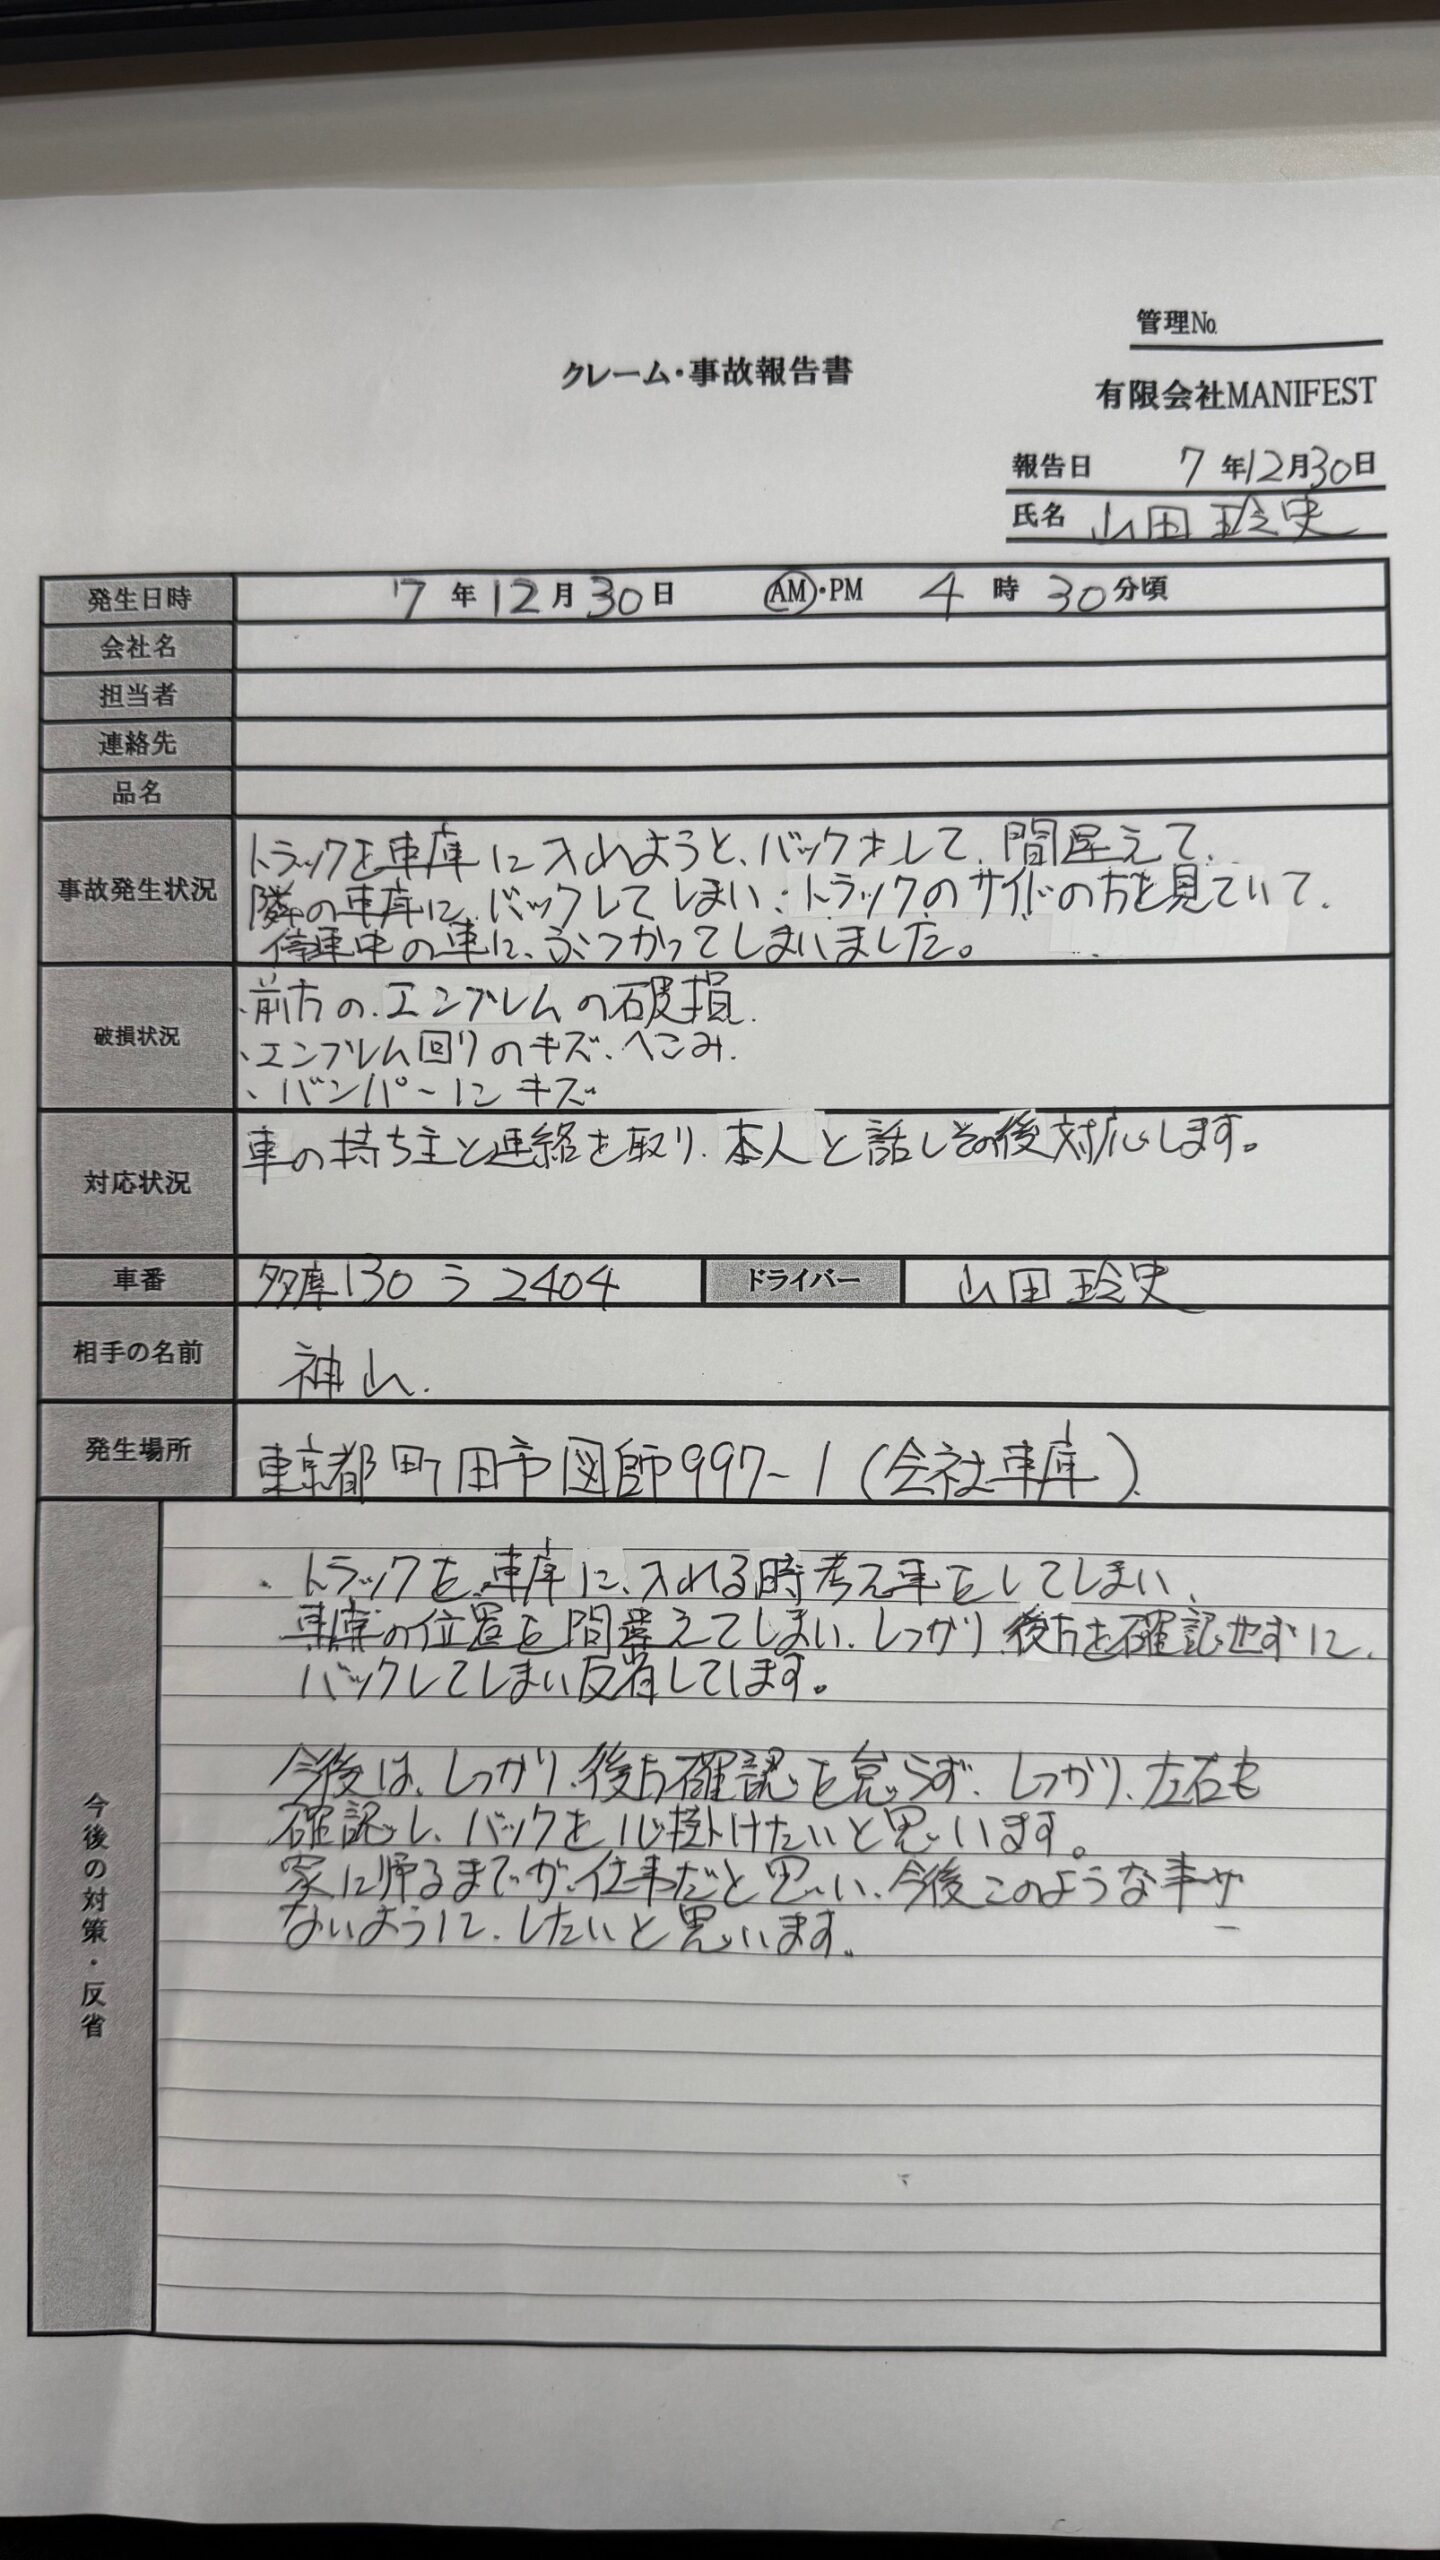 管理№
クレーム・事故報告書
有限会社MANIFEST
報告日 7年12月30日
氏名 山田玲史
発生日時 7年12月30日 AM・PM 4時30分頃
会社名
担当者
連絡先
品名
事故発生状況
トラックを車庫に入れようと、バックをして、間違えて、
隣の車庫に、バックしてしまい、トラックのサイドの方を見ていて、
停車中の車に、ぶつかってしまいました。
破損状況
・前方の、エンブレムの破損、
・エンブレム回りのキズ、へこみ、
・バンパーにキズ
対応状況
車の持ち主と連絡を取り、本人と話しその後対応します。
車番 多摩130 う 2404 ドライバー 山田玲史
相手の名前 神山
発生場所 東京都町田市図師997-1(会社車庫)
今後の対策・反省
・トラックを、車庫に、入れる時考え事をしてしまい、
車庫の位置を間違えてしまい、しっかり、後方を確認せずに、
バックしてしまい反省してます。
今後は、しっかり、後方確認を怠らず、しっかり、左右も
確認し、バックを心掛けたいと思います。
家に帰るまでが、仕事だと思い、今後このような事が
ないように、したいと思います。